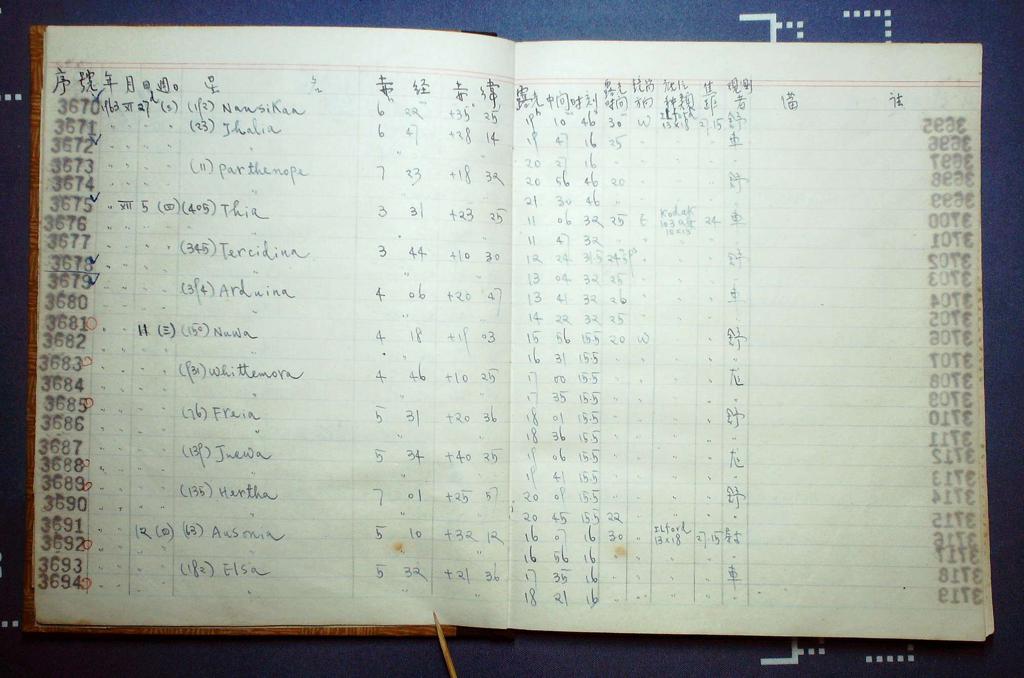 序號 年 月 日 週。 星 名 赤 经 赤 緯 露光 中间 时刻 露光时间 方向 种類 观测者 備 註
3670 1963 XI 27 (3) (192) Nausikaa 6 22 +35 25 19 10 46 30 W Ilford 13×18 27.15 野
3671 〃 〃 (23) Thalia 6 47 +28 14 19 47 16 25 車
3672 20 27 16
3673 (11) parthenope 7 23 +18 32 20 56 46 20 野
3674 21 30 46
3675 〃 XII 5 (四) (405) Thia 3 31 +23 25 11 06 32 25 E Kodak 103aO 24 車
3676 11 47 32
3677 (345) Tercidina 3 44 +10 30 12 24 31.5 野
3678 13 04 32 25
3679 (394) Arduina 4 06 +20 47 13 41 32 26 車
3680 14 22 32 25
3681 11 (三) (150) Nuwa 4 18 +19 03 15 56 15.5 20 W 野
3682 16 31 15.5
3683 (931) Whittemora 4 46 +10 25 17 00 15.5 尨
3684 17 35 15.5
3685 (76) Freia 5 31 +20 36 18 01 15.5 野
3686 18 36 15.5
3687 (139) Juewa 5 34 +40 25 19 06 15.5 尨
3688 19 41 15.5
3689 (135) Hertha 7 01 +25 57 20 09 15.5 野
3690 20 45 15.5 22
3691 12 (四) (63) Ausonia 5 10 +32 12 16 07 16 30 Ilford 13×18 27.15
3692 16 56 16
3693 (182) Elsa 5 32 +21 36 17 35 16 車
3694 18 21 16
3695
3696
3697
3698
3699
3700
3701
3702
3703
3704
3705
3706
3707
3708
3709
3710
3711
3712
3713
3714
3715
3716
3717
3718
3719